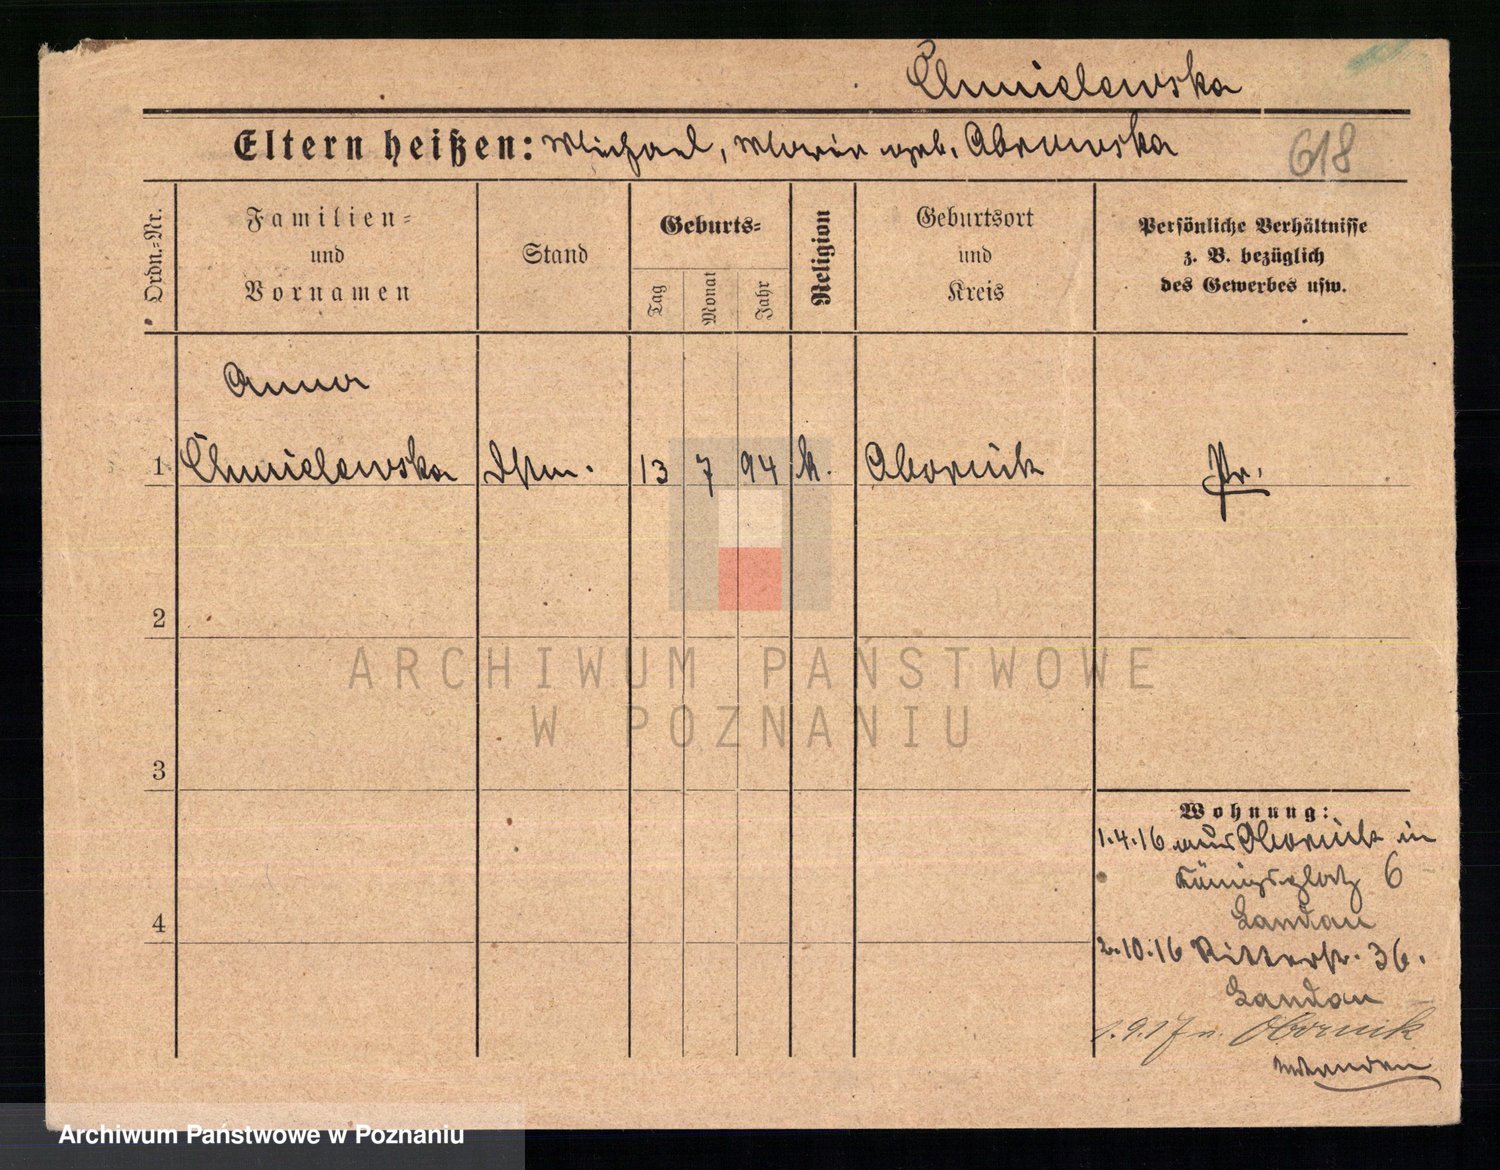 Chmielewska
Eltern heißen: Michael, Maria geb. Abramska
618
Ordn.-Nr.
Familien-
und
Vornamen
Stand
Geburts-
Tag
Monat
Jahr
Religion
Geburtsort
und
Kreis
Persönliche Verhältnisse
z. B. bezüglich
des Gewerbes usw.
Anna
1 Chmielewska Dstm. 13 7 94 k. Obornik Pr.
2
ARCHIWUM PAŃSTWOWE
W POZNANIU
3
Wohnung:
1.4.16 aus Obornik in
Königsplatz 6
Landau
4
2.10.16 Ritterstr. 36.
Landau
1.9.17 n. Obornik
wenden
Archiwum Państwowe w Poznaniu